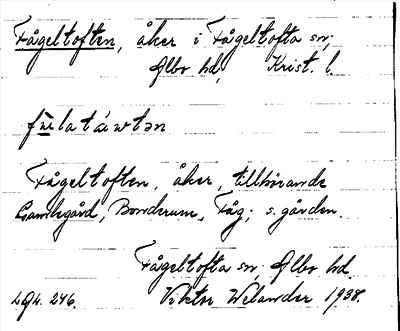 Fågeltoften, åker i Fågeltofta sn;
Albo hd, Krist. l.
Fågeltoften, åker, tillhörande
Gamlegård, Bonderum, Fåg; s. gården.
Fågeltofta sn, Albo hd.
Viktor Welander 1938.